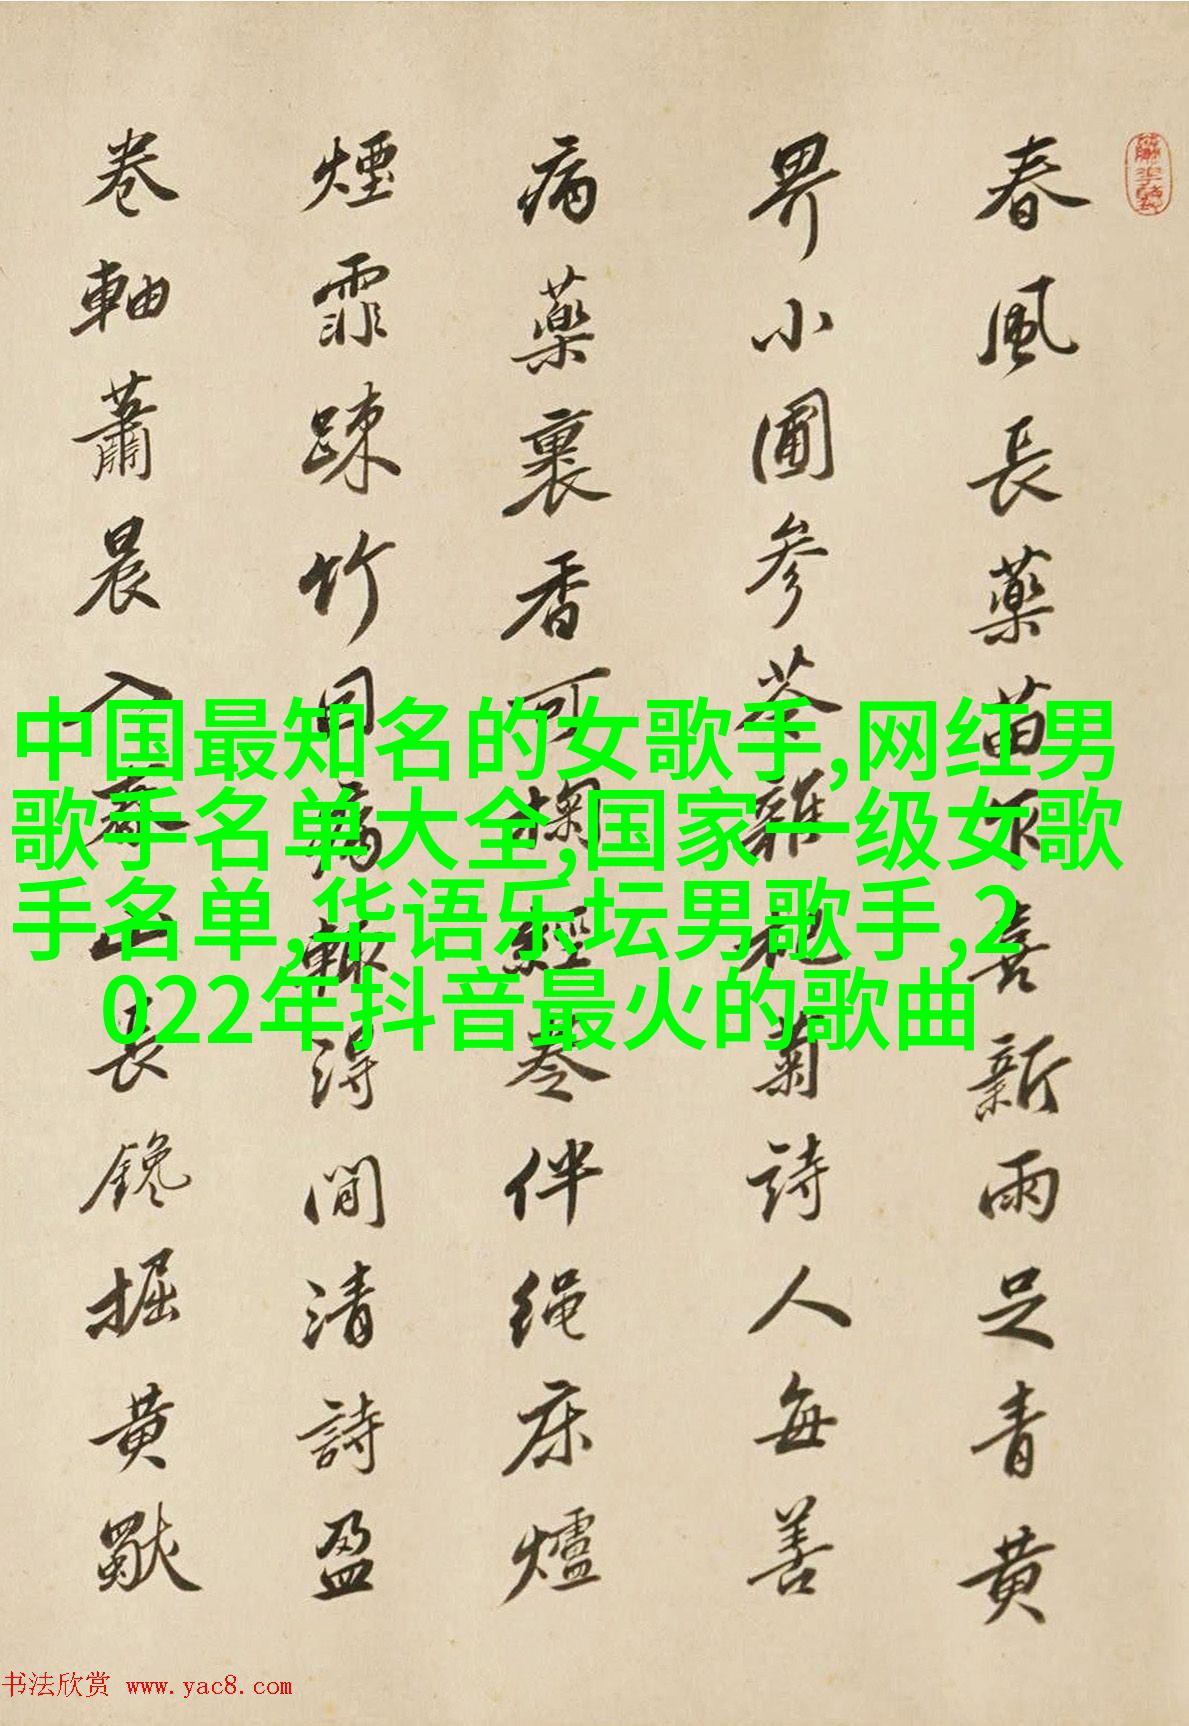 春風長藥苗喜新雨足青黄
界小圃參苓雜杞菊詩人每善
病藥裹香可掬經卷伴繩床爐
煙霏踈竹因病輒得閒清詩盈
卷軸蕭晨入春山長鑱掘黄獨
中国最知名的女歌手,网红男
歌手名单大全,国家一级女歌
手名单,华语乐坛男歌手,2
022年抖音最火的歌曲
书法欣赏 www.yac8.com